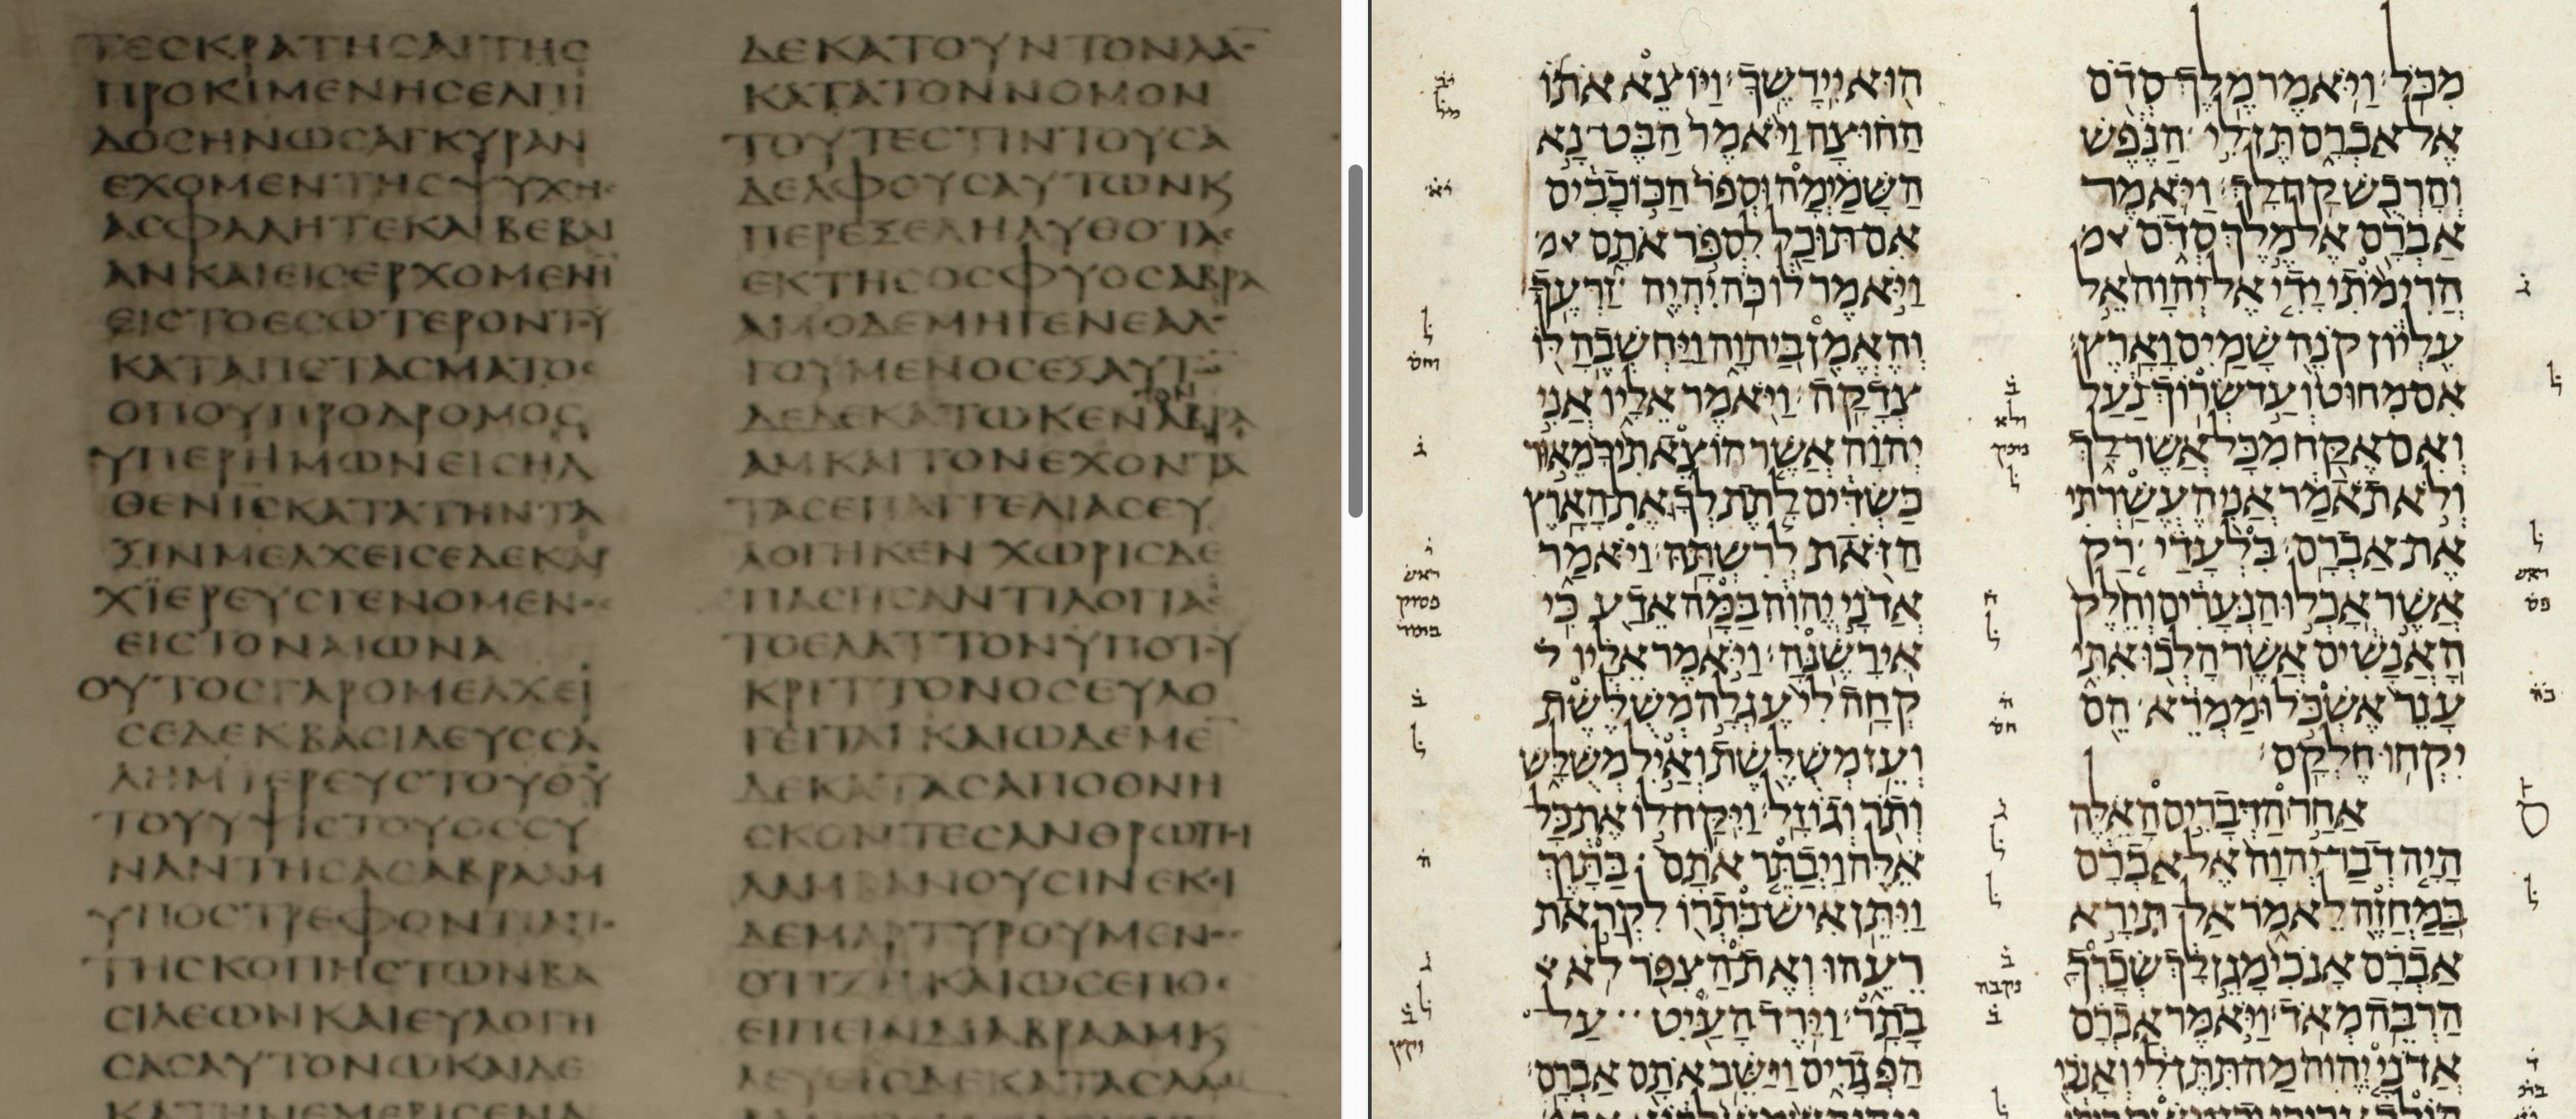 ΤΕСΚΡΑΤΗСΑΙΤΗС
ΠΡΟΚΙΜΕΝΗСΕΛΠΙ
ΔΟСΗΝΩСΑΓΚΥΡΑΝ
ΕΧΟΜΕΝΤΗСΨΥΧΗ
ΑСΦΑΛΗΤΕΚΑΙΒΕΒΑΙ
ΑΝΚΑΙΕΙСΕΡΧΟΜΕΝΗ
ΕΙСΤΟΕСΩΤΕΡΟΝΤΥ
ΚΑΤΑΠΕΤΑСΜΑΤΟС
ΟΠΟΥΠΡΟΔΡΟΜΟС
ΥΠΕΡΗΜΩΝΕΙСΗΛ
ΘΕΝΙСΚΑΤΑΤΗΝΤΑ
ΞΙΝΜΕΛΧΕΙСΕΔΕΚΑΡ
ΧΪΕΡΕΥСΓΕΝΟΜΕΝ
ΕΙСΤΟΝΑΙΩΝΑ
ΟΥΤΟСΓΑΡΟΜΕΛΧΕΙ
СΕΔΕΚΒΑСΙΛΕΥССΑ
ΛΗΜΪΕΡΕΥСΤΟΥΘΥ
ΤΟΥΥΨΙСΤΟΥΟССΥ
ΝΑΝΤΗСΑСΑΒΡΑΑΜ
ΥΠΟСΤΡΕΦΟΝΤΙΑΠ
ΤΗСΚΟΠΗСΤΩΝΒΑ
СΙΛΕΩΝΚΑΙΕΥΛΟΓΗ
СΑСΑΥΤΟΝΩΚΑΙΔΕ
ΔΕΚΑΤΟΥΝΤΟΝΛΑ
ΚΑΤΑΤΟΝΝΟΜΟΝ
ΤΟΥΤΕСΤΙΝΤΟΥСΑ
ΔΕΛΦΟΥСΑΥΤΩΝΚ
ΠΕΡΕΞΕΛΗΛΥΘΟΤΑ
ΕΚΤΗСΟСΦΥΟСΑΒΡΑ
ΑΜΟΔΕΜΗΓΕΝΕΑΛ
ΓΟΥΜΕΝΟСΕΞΑΥΤ
ΔΕΔΕΚΑΤΩΚΕΝΤΟΝΑΒΡΑ
ΑΜΚΑΙΤΟΝΕΧΟΝΤΑ
ΤΑСΕΠΑΓΓΕΛΙΑСΕΥ
ΛΟΓΗΚΕΝΧΩΡΙСΔΕ
ΠΑСΗСΑΝΤΙΛΟΓΙΑ
ΤΟΕΛΑΤΤΟΝΥΠΟΤΥ
ΚΡΙΤΤΟΝΟСΕΥΛΟ
ΓΕΙΤΑΙΚΑΙΩΔΕΜΕ
ΔΕΚΑΤΑСΑΠΟΘΝΗ
СΚΟΝΤΕСΑΝΘΡΩΠΙ
ΛΑΜΒΑΝΟΥСΙΝΕΚΙ
ΔΕΜΑΡΤΥΡΟΥΜΕΝ
ΟΤΙΖΗΚΑΙΩСΕΠΟ
ΕΙΠΕΙΝΔΙΑΒΡΑΑΜΚ
ΛΕΥΕΙСΔΕΚΑΤΑСΛΑΜ
מִכֹּל׃ וַיֹּאמֶר מֶלֶךְ־סְדֹם
אֶל־אַבְרָם תֶּן־לִי הַנֶּפֶשׁ
וְהָרְכֻשׁ קַח־לָךְ׃ וַיֹּאמֶר
אַבְרָם אֶל־מֶלֶךְ סְדֹם
הֲרִימֹתִי יָדִי אֶל־יְהוָה אֵל
עֶלְיוֹן קֹנֵה שָׁמַיִם וָאָרֶץ׃
אִם־מִחוּט וְעַד שְׂרוֹךְ־נַעַל
וְאִם־אֶקַּח מִכָּל־אֲשֶׁר־לָךְ
וְלֹא תֹאמַר אֲנִי הֶעֱשַׁרְתִּי
אֶת־אַבְרָם׃ בִּלְעָדַי רַק
אֲשֶׁר אָכְלוּ הַנְּעָרִים וְחֵלֶק
הָאֲנָשִׁים אֲשֶׁר הָלְכוּ אִתִּי
עָנֵר אֶשְׁכֹּל וּמַמְרֵא הֵם
יִקְחוּ חֶלְקָם׃
אַחַר הַדְּבָרִים הָאֵלֶּה
הָיָה דְבַר־יְהוָה אֶל־אַבְרָם
בַּמַּחֲזֶה לֵאמֹר אַל־תִּירָא
אַבְרָם אָנֹכִי מָגֵן לָךְ שְׂכָרְךָ
הַרְבֵּה מְאֹד׃ וַיֹּאמֶר אַבְרָם
אֲדֹנָי יֱהוִה מַה־תִּתֶּן־לִי וְאָנֹכִי
הוּא יִירָשֶׁךָ׃ וַיּוֹצֵא אֹתוֹ
הַחוּצָה וַיֹּאמֶר הַבֶּט־נָא
הַשָּׁמַיְמָה וּסְפֹר הַכּוֹכָבִים
אִם־תּוּכַל לִסְפֹּר אֹתָם
וַיֹּאמֶר לוֹ כֹּה יִהְיֶה זַרְעֶךָ׃
וְהֶאֱמִן בַּיהוָה וַיַּחְשְׁבֶהָ לּוֹ
צְדָקָה׃ וַיֹּאמֶר אֵלָיו אֲנִי
יְהוָה אֲשֶׁר הוֹצֵאתִיךָ מֵאוּר
כַּשְׂדִּים לָתֶת לְךָ אֶת־הָאָרֶץ
הַזֹּאת לְרִשְׁתָּהּ׃ וַיֹּאמַר
אֲדֹנָי יֱהוִה בַּמָּה אֵדַע כִּי
אִירָשֶׁנָּה׃ וַיֹּאמֶר אֵלָיו
קְחָה לִי עֶגְלָה מְשֻׁלֶּשֶׁת
וְעֵז מְשֻׁלֶּשֶׁת וְאַיִל מְשֻׁלָּשׁ
וְתֹר וְגוֹזָל׃ וַיִּקַּח־לוֹ אֶת־כָּל־
אֵלֶּה וַיְבַתֵּר אֹתָם בַּתָּוֶךְ
וַיִּתֵּן אִישׁ־בִּתְרוֹ לִקְרַאת
רֵעֵהוּ וְאֶת־הַצִּפֹּר לֹא
בָתָר׃ וַיֵּרֶד הָעַיִט עַל־
הַפְּגָרִים וַיַּשֵּׁב אֹתָם אַבְרָם׃